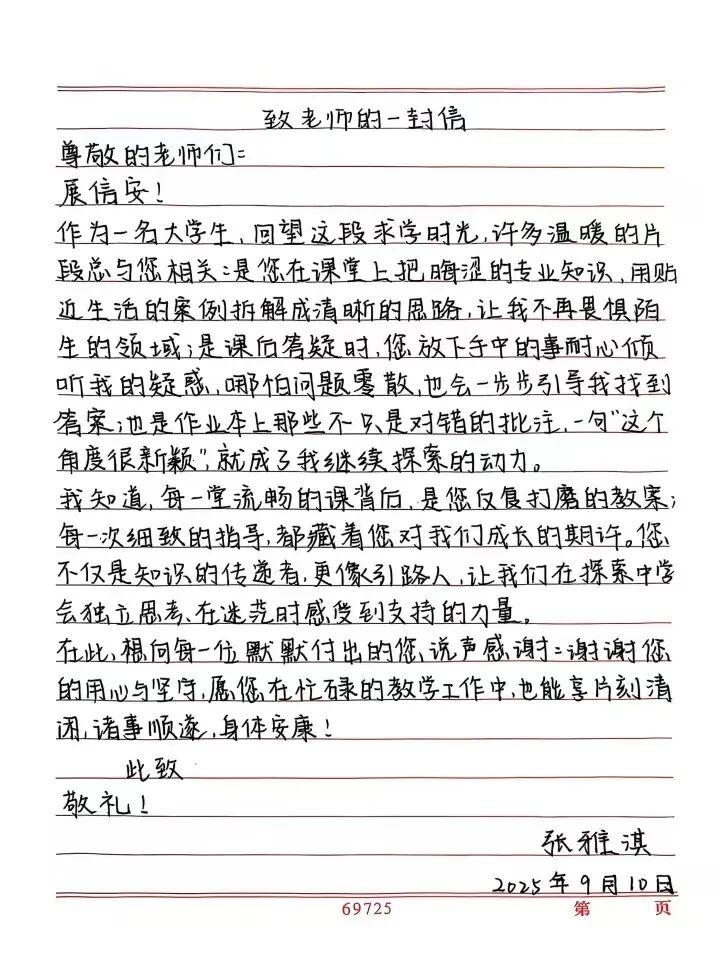 致老师的一封信
尊敬的老师们:
展信安!
作为一名大学生,回望这段求学时光,许多温暖的片
段总与您相关:是您在课堂上把晦涩的专业知识,用贴
近生活的案例拆解成清晰的思路,让我不再畏惧陌
生的领域;是课后答疑时,您放下手中的事耐心倾
听我的疑惑,哪怕问题零散,也会一步步引导我找到
答案;也是作业本上那些不只是对错的批注,一句“这个
角度很新颖”,就成了我继续探索的动力。
我知道,每一堂流畅的课背后,是您反复打磨的教案;
每一次细致的指导,都藏着您对我们成长的期许。您
不仅是知识的传递者,更像引路人,让我们在探索中学
会独立思考、在迷茫时感受到支持的力量。
在此,想向每一位默默付出的您,说声感谢:谢谢您
的用心与坚守,愿您在忙碌的教学工作中,也能享片刻清
闲,诸事顺遂,身体安康!
此致
敬礼!
张雅淇
2025年9月10日
69725 第 页